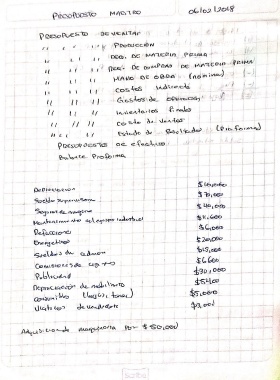 PRESUPUESTO MAESTRO 06/02/2018
PRESUPUESTO DE VENTAS
" " " PRODUCCIÓN
" " " REQ. DE MATERIA PRIMA
" " " DE COMPRAS DE MATERIA PRIMA
" " " MANO DE OBRA (nomina)
" " " COSTOS Indirectos
" " " Gastos de OPERACION
" " " Inventarios Finales
" " " Costo de Ventas
" " " Estado de Resultados (Proforma)
PRESUPUESTO DE EFECTIVO
Balance Proforma
Depreciacion
Sueldo Supervisores $70,000
Seguros de maquina $40,000
Mantenimiento del equipo industrial
Refacciones $6,000
Energeticos $20,000
Sueldos de admon $15,000
Comisiones de $6,600
Publicidad $30,000
Depreciación de mobiliario $5400
Consumibles (hojas, toner) $5,000
Viaticos de vendedores $3,000
Adquisicion de maquinaria por $50,000